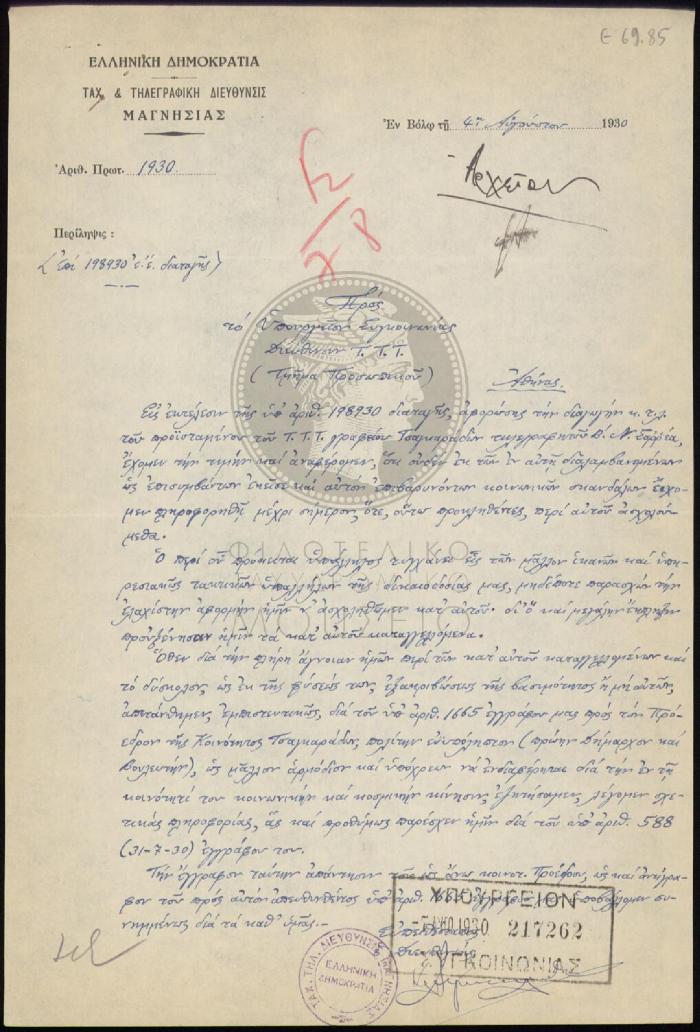 Ε 69.85
ΕΛΛΗΝΙΚΗ ΔΗΜΟΚΡΑΤΙΑ
ΤΑΧ. & ΤΗΛΕΓΡΑΦΙΚΗ ΔΙΕΥΘΥΝΣΙΣ
ΜΑΓΝΗΣΙΑΣ
Ἐν Βόλῳ τῇ 4ῃ Αὐγούστου 1930
Ἀριθ. Πρωτ. 1930
Ἀρχεῖον
Περίληψις :
(Ἐπὶ 198930 ἐ.ἔ. διαταγῆς)
Πρὸς
τὸ Ὑπουργεῖον Συγκοινωνίας
Διεύθυνσιν Τ.Τ.Τ.
(Τμῆμα Προσωπικοῦ)
Ἀθήνας.
Εἰς ἐκτέλεσιν τῆς ὑπ' ἀριθ. 198930 διαταγῆς, ἀφορώσης τὴν διαγωγὴν κ.τ.λ.
τοῦ προϊσταμένου τοῦ Τ.Τ.Τ. γραφείου Τσαγκαράδων τηλεγραφητοῦ Δ. Ν.
ἔχομεν τὴν τιμὴν καὶ ἀναφέρομεν, ὅτι οὐδὲν ἐκ τῶν ἐν αὐτῇ διαλαμβανομένων
ὡς ἐπισυμβάντων ἐκεῖσε καὶ αὐτὸν ἐπιβαρυνόντων κοινωνικῶν σκανδάλων ἔσχο-
μεν πληροφορηθῇ μέχρι σήμερον, ὅτε, οὕτω προκληθέντες, περὶ αὐτοῦ ἀσχολού-
μεθα.
Ὁ περὶ οὗ πρόκειται ὑπάλληλος τυγχάνει εἷς τῶν μᾶλλον ἱκανῶν καὶ ὑπη-
ρεσιακῶς τακτικῶν ὑπαλλήλων τῆς δικαιοδοσίας μας, μηδέποτε παρασχὼν τὴν
ἐλαχίστην ἀφορμὴν ἡμῖν ν' ἀσχοληθῶμεν κατ' αὐτοῦ· δι' ὃ καὶ μεγάλην ἔκπληξιν
προὐξένησαν ἡμῖν τὰ κατ' αὐτοῦ καταγγελλόμενα.
Ὅθεν διὰ τὴν πλήρη ἄγνοιαν ἡμῶν περὶ τῶν κατ' αὐτοῦ καταγγελλομένων καὶ
τὸ δύσκολον, ὡς ἐκ τῆς φύσεώς των, ἐξακριβώσεως τῆς βασιμότητος ἢ μὴ αὐτῶν,
ἀπετάνθημεν, ἐμπιστευτικῶς, διὰ τοῦ ὑπ' ἀριθ. 1665 ἐγγράφου μας πρὸς τὸν Πρό-
εδρον τῆς Κοινότητος Τσαγκαράδων, πολίτην εὐυπόληπτον (πρώην Δήμαρχον καὶ
Βουλευτήν), ὡς μᾶλλον ἁρμόδιον καὶ ὑπόχρεων νὰ ἐνδιαφέρηται διὰ τὴν ἐν τῇ
κοινότητί του κοινωνικὴν καὶ κοσμικὴν κίνησιν, ἐζητήσαμεν, λέγομεν, σχε-
τικὰς πληροφορίας, ἃς καὶ προθύμως παρέσχεν ἡμῖν διὰ τοῦ ὑπ' ἀριθ. 588
(31-7-30) ἐγγράφου του.
Τὴν ἔγγραφον ταύτην ἀπάντησιν τοῦ ὡς ἄνω κοινοτ. Προέδρου, ὡς καὶ ἀντίγρα-
φον τοῦ πρὸς αὐτὸν ἀπευθυνθέντος ὑπ' ἀριθ. 1665 ἐγγράφου μας ὑποβάλλομεν συ-
νημμένως διὰ τὰ καθ' ὑμᾶς.-
Εὐπειθέστατος
Διευθυντής
ΥΠΟΥΡΓΕΙΟΝ
-5 ΑΥΓ 1930 217262
ΣΥΓΚΟΙΝΩΝΙΑΣ
ΤΑΧ. ΤΗΛ. ΔΙΕΥΘΥΝΣΙΣ ΜΑΓΝΗΣΙΑΣ
ΕΛΛΗΝΙΚΗ
ΔΗΜΟΚΡΑΤΙΑ
ΦΙΛΟΤΕΛΙΚΟ
ΤΑΧΥΔΡΟΜΙΚΟ
ΜΟΥΣΕΙΟ